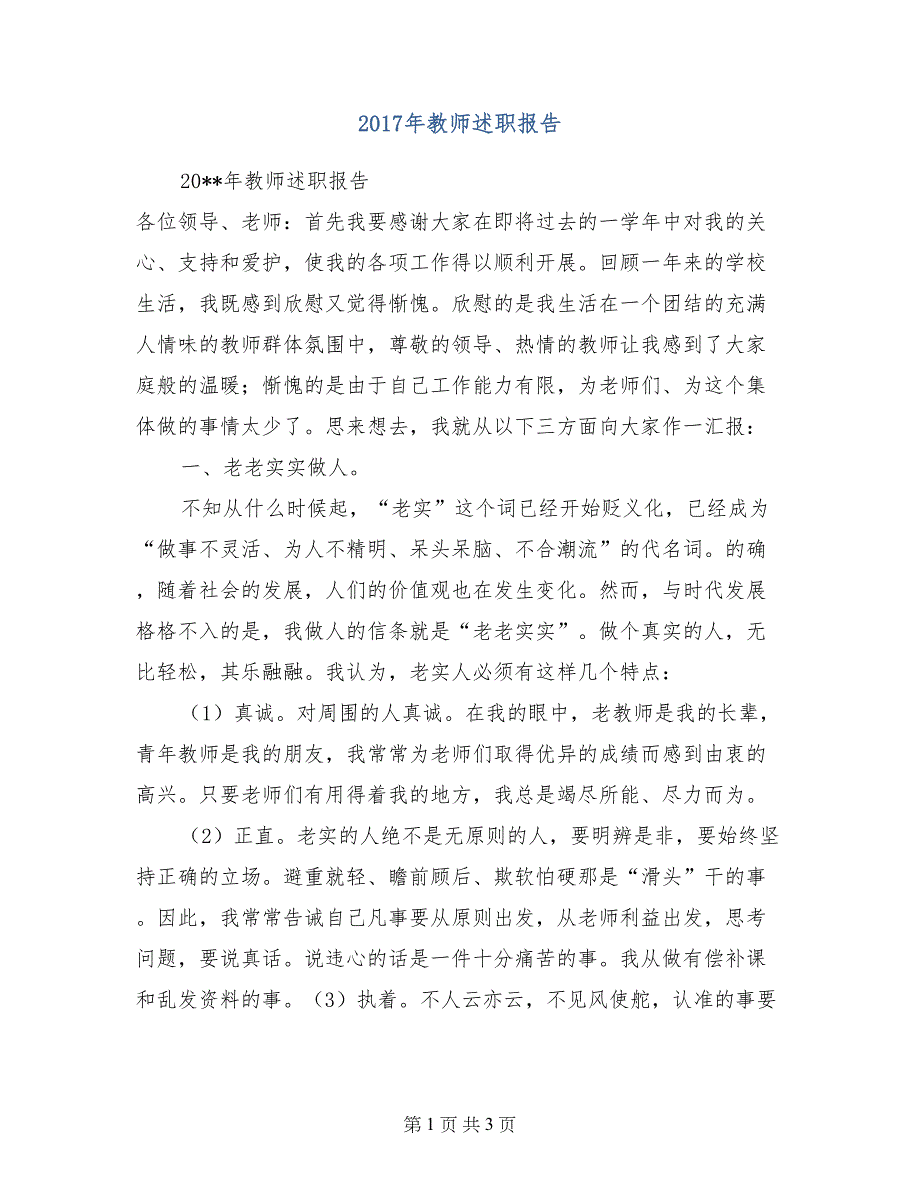 2017年教师述职报告
20**年教师述职报告
各位领导、老师：首先我要感谢大家在即将过去的一学年中对我的关
心、支持和爱护，使我的各项工作得以顺利开展。回顾一年来的学校
生活，我既感到欣慰又觉得惭愧。欣慰的是我生活在一个团结的充满
人情味的教师群体氛围中，尊敬的领导、热情的教师让我感到了大家
庭般的温暖；惭愧的是由于自己工作能力有限，为老师们、为这个集
体做的事情太少了。思来想去，我就从以下三方面向大家作一汇报：
一、老老实实做人。
不知从什么时候起，“老实”这个词已经开始贬义化，已经成为
“做事不灵活、为人不精明、呆头呆脑、不合潮流”的代名词。的确
，随着社会的发展，人们的价值观也在发生变化。然而，与时代发展
格格不入的是，我做人的信条就是“老老实实”。做个真实的人，无
比轻松，其乐融融。我认为，老实人必须有这样几个特点：
（1）真诚。对周围的人真诚。在我的眼中，老教师是我的长辈，
青年教师是我的朋友，我常常为老师们取得优异的成绩而感到由衷的
高兴。只要老师们有用得着我的地方，我总是竭尽所能、尽力而为。
（2）正直。老实的人绝不是无原则的人，要明辨是非，要始终坚
持正确的立场。避重就轻、瞻前顾后、欺软怕硬那是“滑头”干的事
。因此，我常常告诫自己凡事要从原则出发，从老师利益出发，思考
问题，要说真话。说违心的话是一件十分痛苦的事。我从做有偿补课
和乱发资料的事。（3）执着。不人云亦云，不见风使舵，认准的事要
第 1 页 共 3 页